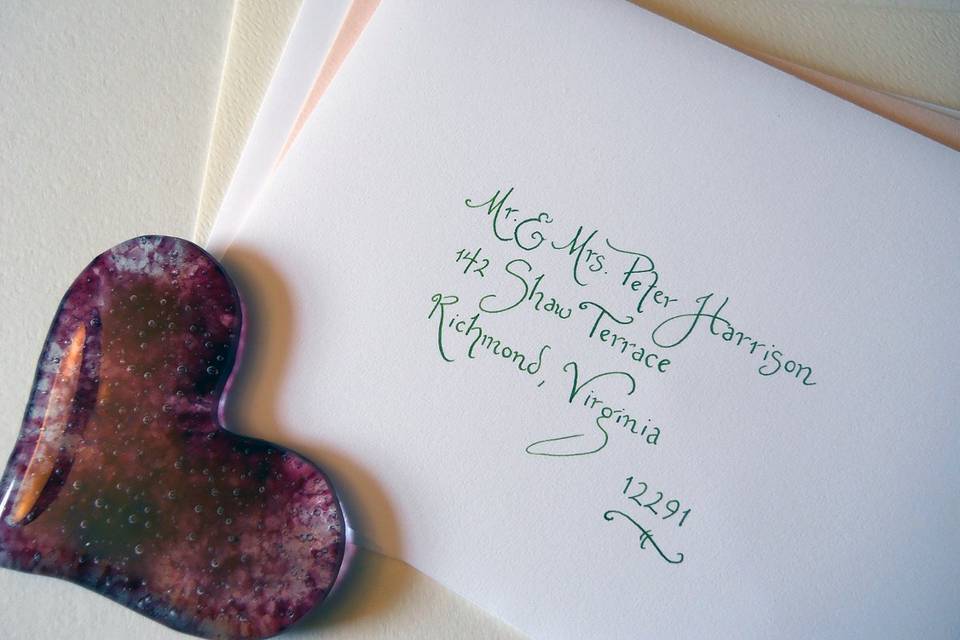 Mr. & Mrs. Peter Harrison
142 Shaw Terrace
Richmond, Virginia
12291